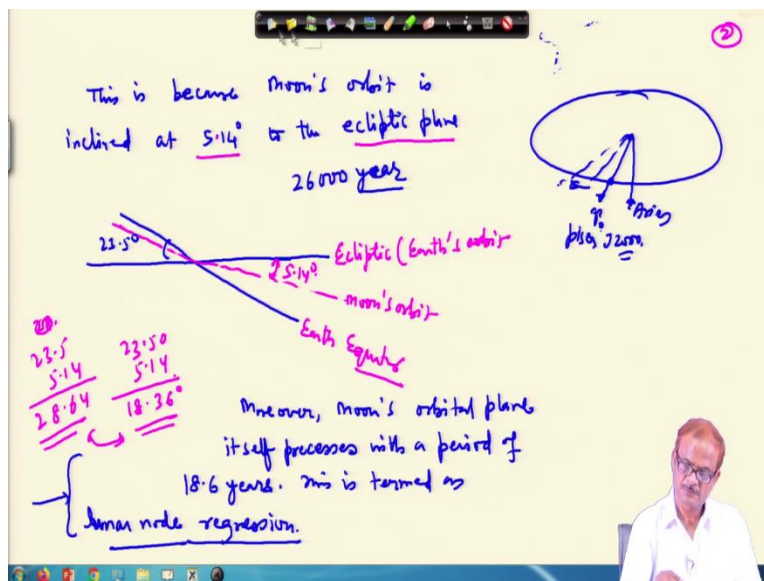 ②
This is because Moon's orbit is
inclined at 5.14° to the ecliptic plane
26000 year
Aries
J2000
23.5°
Ecliptic (Earth's orbit
5.14°
Moon's orbit
Earth Equator
23.5
5.14
28.64
23.50
5.14
18.36°
Moreover, Moon's orbital plane
itself precesses with a period of
18.6 years. This is termed as
lunar node regression.